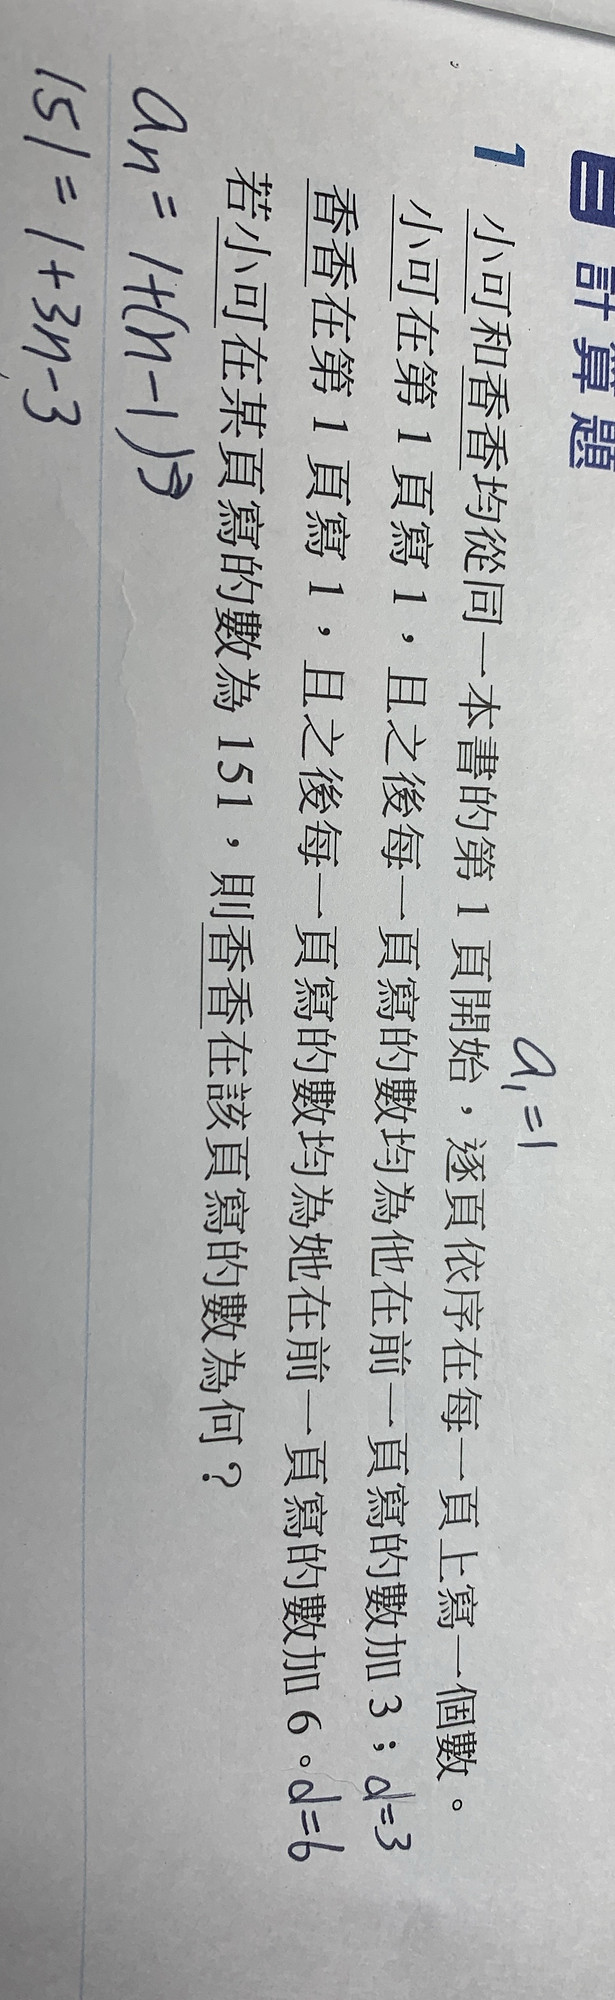 計算題
a₁=1
1 小可和香香均從同一本書的第1頁開始，逐頁依序在每一頁上寫一個數。
小可在第1頁寫1，且之後每一頁寫的數均為他在前一頁寫的數加3；d=3
香香在第1頁寫1，且之後每一頁寫的數均為她在前一頁寫的數加6。d=6
若小可在某頁寫的數為151，則香香在該頁寫的數為何？
an=1+(n-1)3
151=1+3n-3